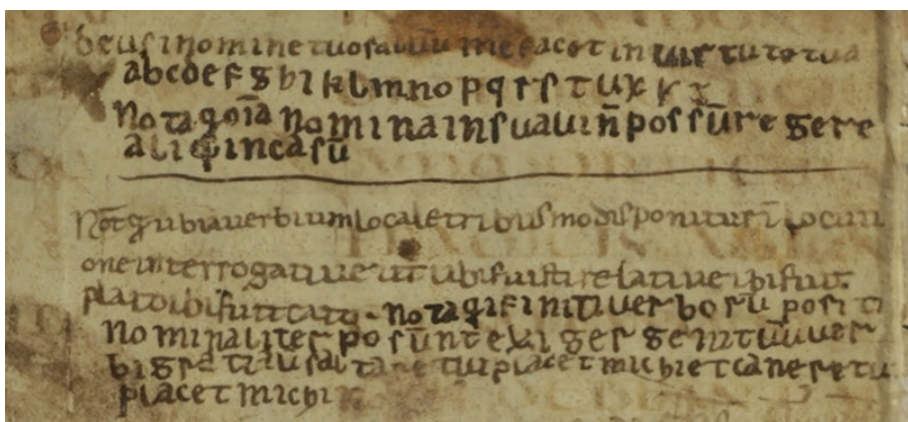 deus inomine tuo saluū me facet in uirtute tua
abcdefghiklmnopqrsſtuxyz
Nota q oīa nomina in sua uiñ possūregere
aliq incasū
Not q ubi auerbium locale tribus modis ponitur ī locuti
one interrogatiue ut ubi fuisti relatiue ibi fuit
plato ibi fuit cato. Nota q ifinitiuer bo sū positi
Nominaliter possūnt exiger genitūuer
bi gra tui saltare tui placet michi et canere tu
placet michi